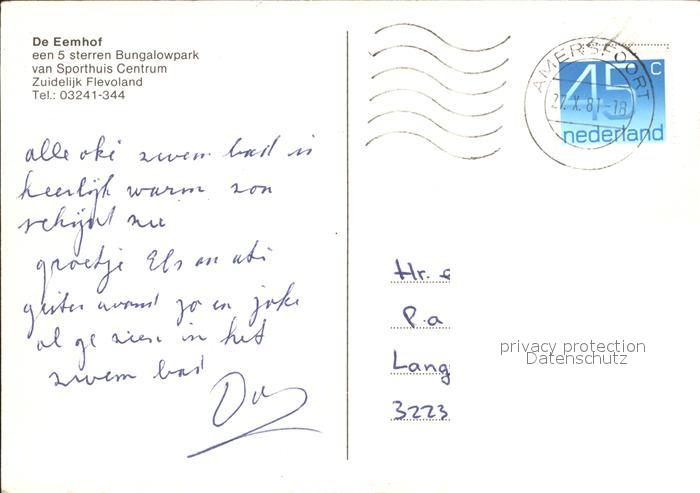 De Eemhof
een 5 sterren Bungalowpark
van Sporthuis Centrum
Zuidelijk Flevoland
Tel.: 03241-344
alle oké zwem bad is
heerlijk warm zon
schijnt
groetje Els en
gister avond jo en joke
al ge zien in het
zwem bad
AMERSFOORT
27.X.81-18
45 C
nederland
Hr. e
P.a
Lang
3223
privacy protection
Datenschutz